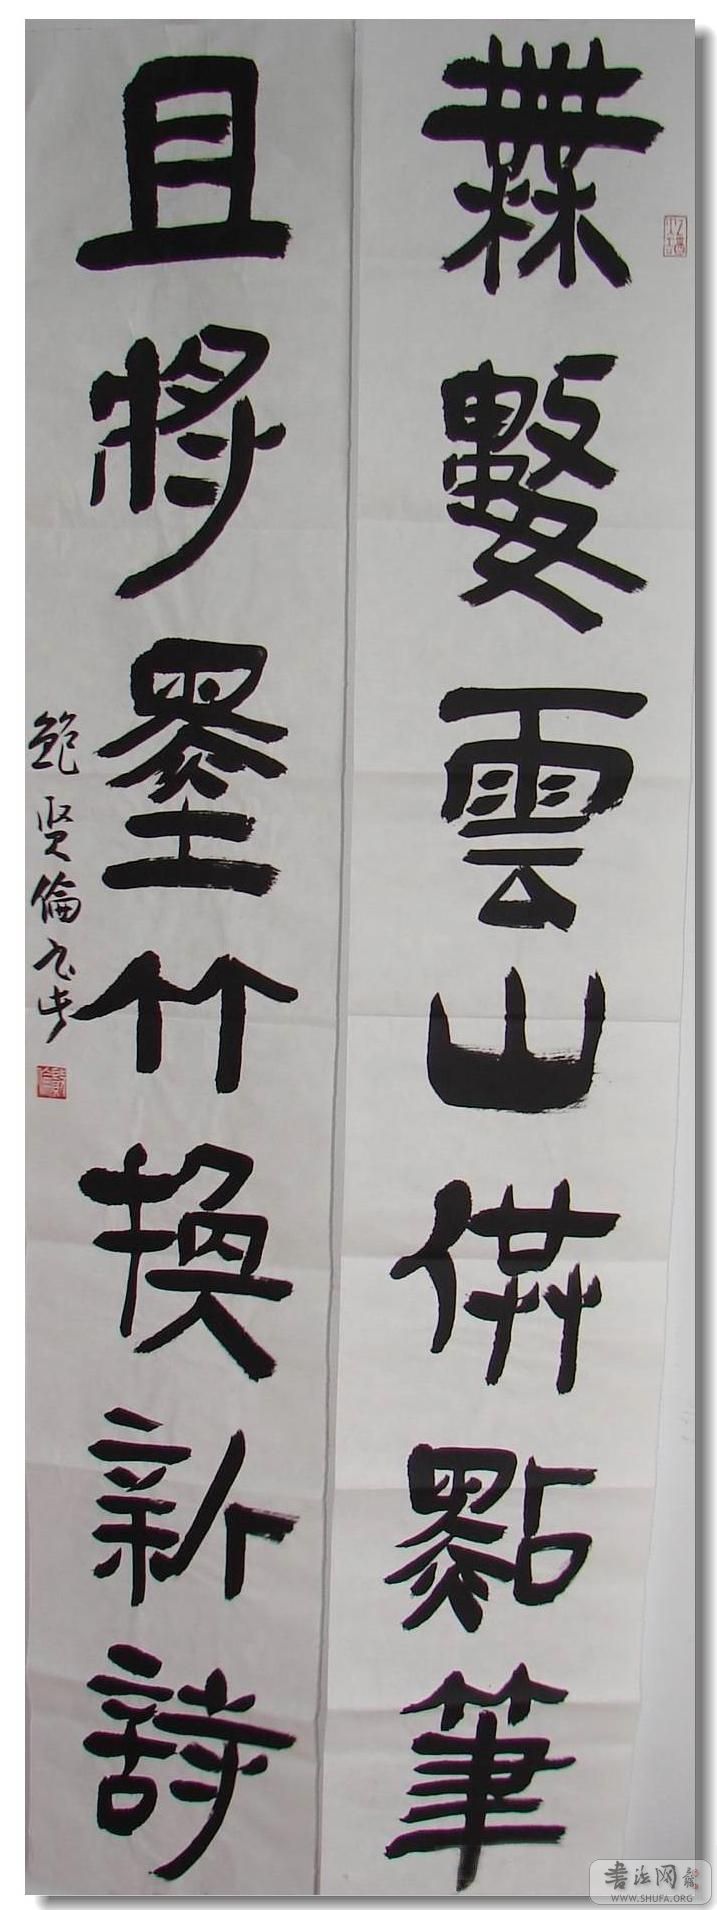 無數雲山供點筆
且將墨竹換新詩
鮑賢倫
书法网
WWW.SHUFA.ORG